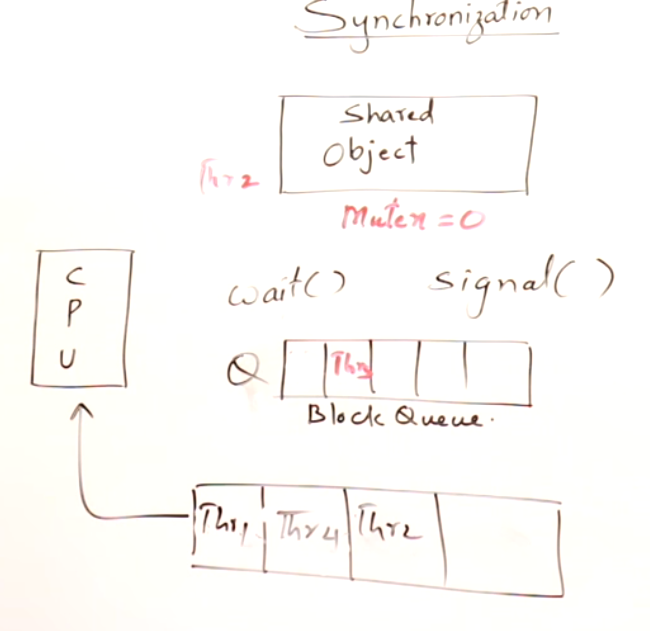 Synchronization
Shared
Object
Thr2
Mutex = 0
C
P
U
wait() signal()
Q
Thr3
Block Queue.
Thr1 Thr4 Thr2